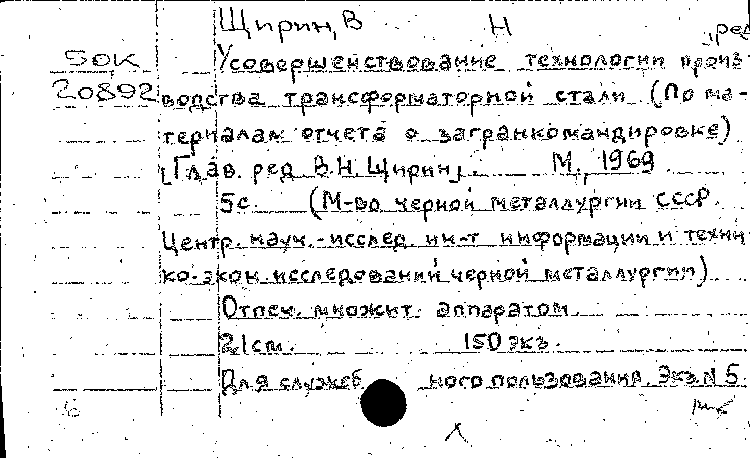 Щирин, В Н „ред
50К Усовершенствование технологии произ-
20892 водства трансформаторной стали (По ма-
териалам отчета о загранкомандировке)
[Глав. ред. В.Н. Щирин]. М., 1969
5с. (М-во черной металлургии СССР.
Центр. науч.-исслед. ин-т информации и техни
ко-экон. исследований черной металлургии)
Отпеч. множит. аппаратом.
21см. 150 экз.
Для служеб ного пользования. Экз N 5.
б